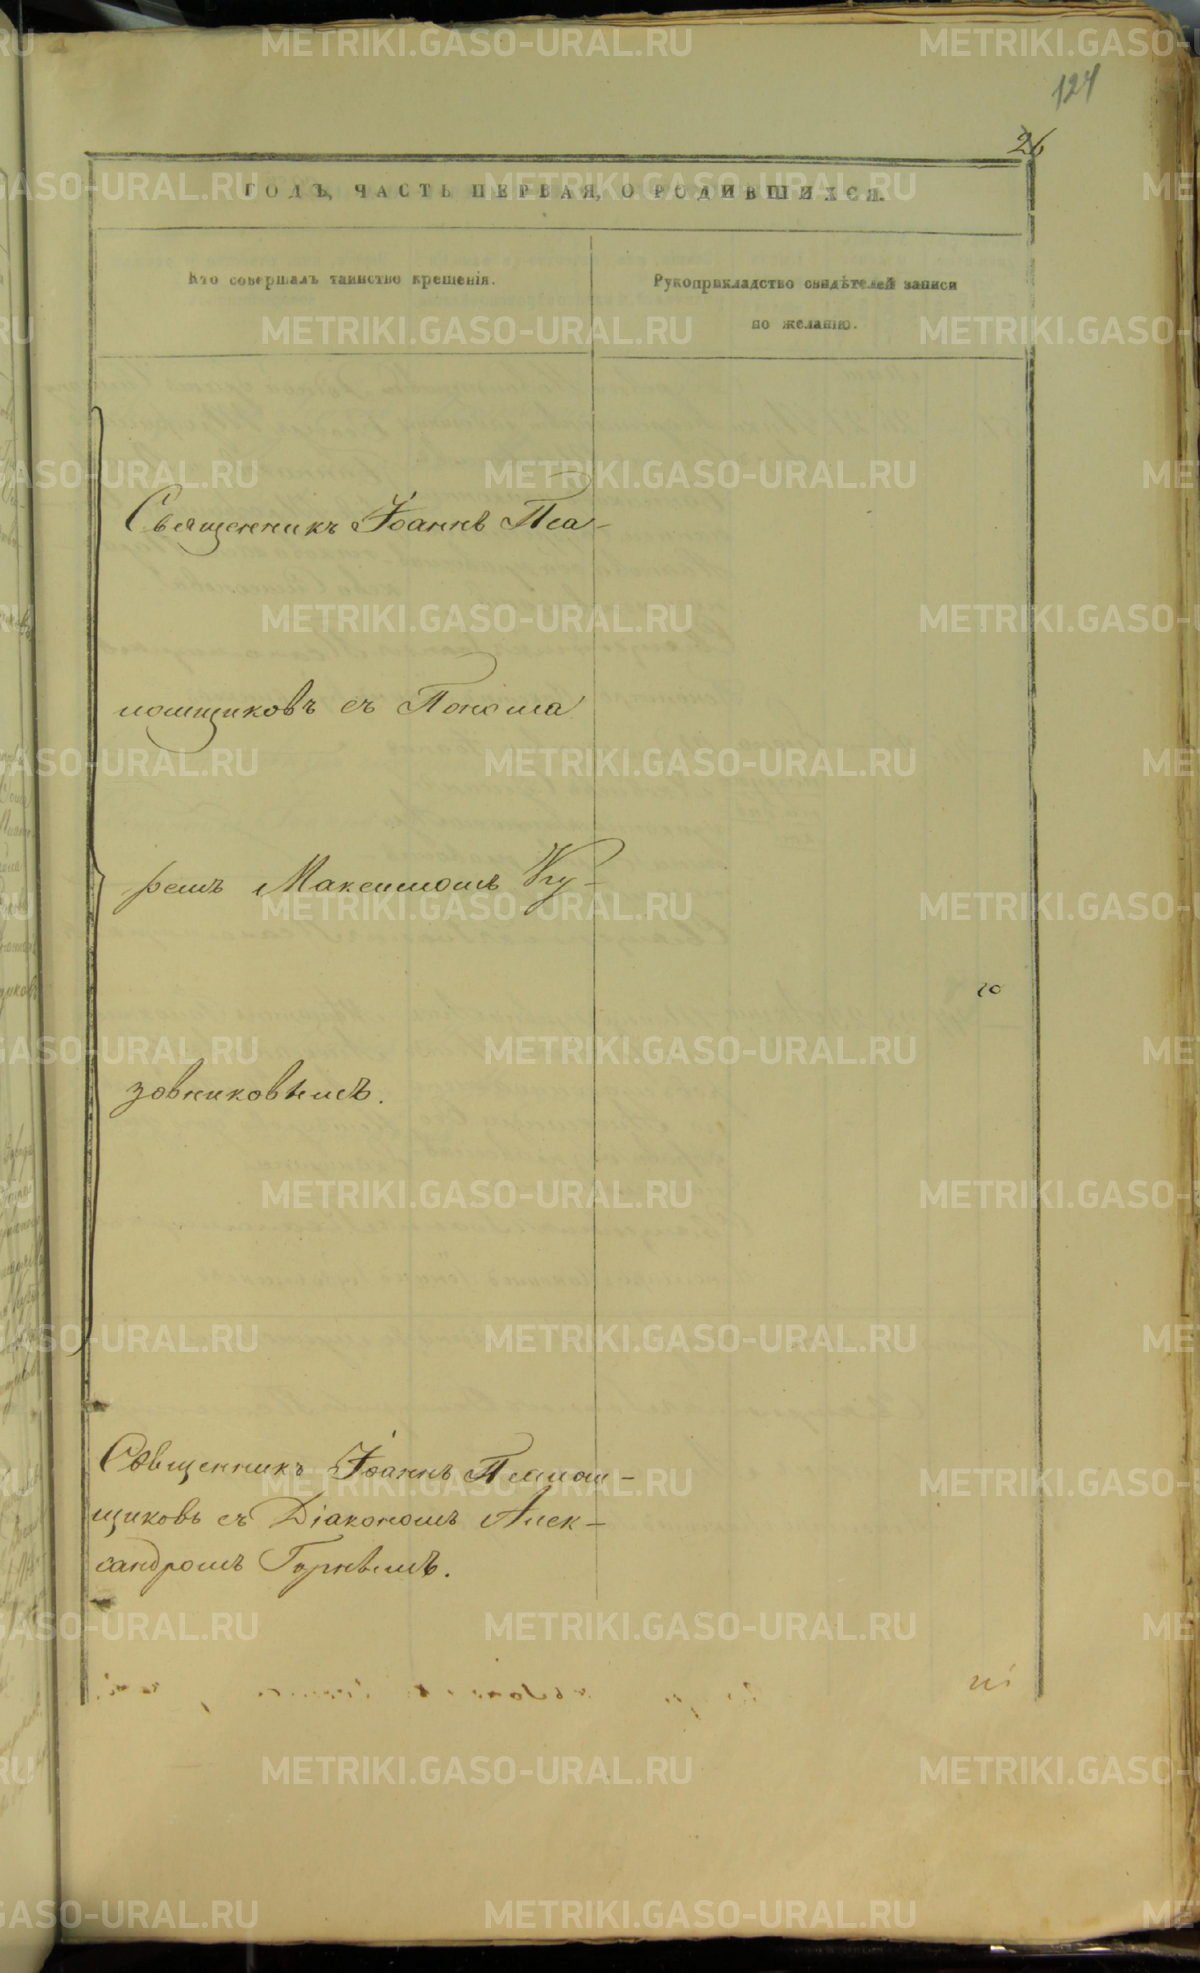 124
26
ГОДЪ, ЧАСТЬ ПЕРВАЯ, О РОДИВШИХСЯ.
Кто совершалъ таинство крещенія.
Рукоприкладство свидѣтелей записи
по желанію.
Священникъ Іоаннъ Пса-
ломщиковъ съ Понома
ремъ Максимомъ Ку-
зовниковымъ.
Священникъ Іоаннъ Псалом-
щиковъ съ Діакономъ Алек-
сандромъ Горнымъ.
METRIKI.GASO-URAL.RU